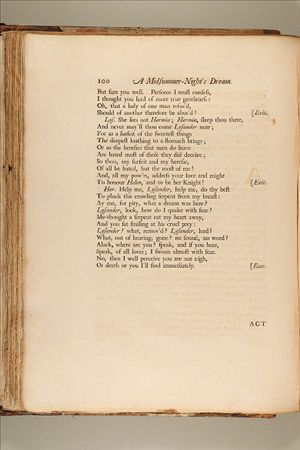 100 A Midsummer-Night's Dream.
But fare you well. Perforce I must confess,
I thought you lord of more true gentleness:
Oh, that a lady of one man refus'd,
Should of another therefore be abus'd! [Exit.
Lys. She sees not Hermia; Hermia, sleep thou there,
And never may'st thou come Lysander near;
For as a surfeit of the sweetest things
The deepest loathing to a stomach brings;
Or as the heresies that men do leave
Are hated most of those they did deceive;
So thou, my surfeit and my heresie,
Of all be hated, but the most of me!
And, all my pow'rs, address your love and might
To honour Helen, and to be her Knight! [Exit.
Her. Help me, Lysander, help me, do thy best
To pluck this crawling serpent from my breast:
Ay me, for pity, what a dream was here?
Lysander, look, how do I quake with fear?
Me-thought a serpent eat my heart away,
And you sat smiling at his cruel prey:
Lysander! what, remov'd? Lysander, lord!
What, out of hearing, gone? no sound, no word?
Alack, where are you? speak, and if you hear,
Speak, of all loves; I swoon almost with fear.
No, then I well perceive you are not nigh,
Or death or you I'll find immediately. [Exit.
ACT